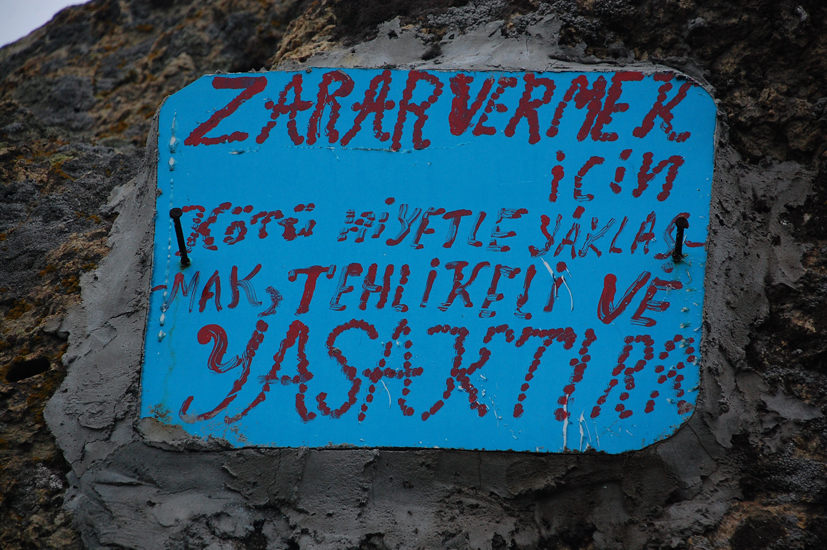 ZARAR VERMEK
için
Kötü NiYETLE YAKLAŞ-
-MAK, TEHLiKELi VE
YASAKTIR.